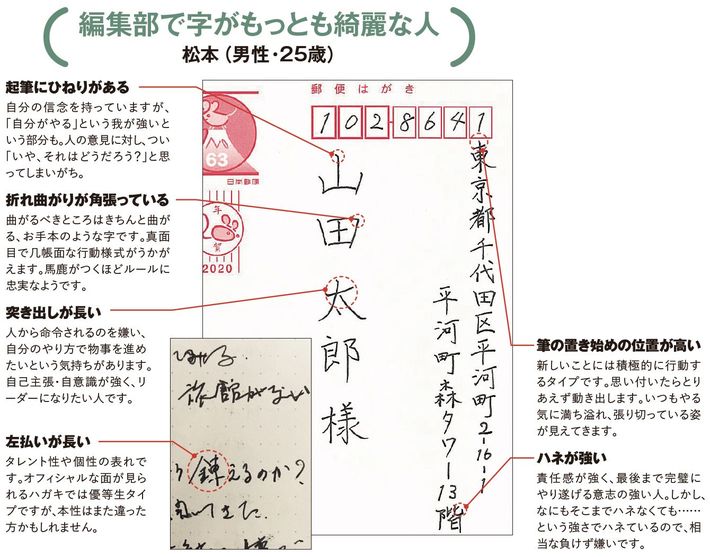 編集部で字がもっとも綺麗な人
松本（男性・25歳）
起筆にひねりがある
自分の信念を持っていますが、
「自分がやる」という我が強いと
いう部分も。人の意見に対し、つい
「いや、それはどうだろう?」と思
ってしまいがち。
折れ曲がりが角張っている
曲がるべきところはきちんと曲が
る、お手本のような字です。真面
目で几帳面な行動様式がうかが
えます。馬鹿がつくほどルールに
忠実なようです。
突き出しが長い
人から命令されるのを嫌い、
自分のやり方で物事を進め
たいという気持ちがあります。
自己主張・自意識が強く、リ
ーダーになりたい人です。
左払いが長い
タレント性や個性の表れで
す。オフィシャルな面が見ら
れるハガキでは優等生タイ
プですが、本性はまた違った
方かもしれません。
郵便はがき
63
日本郵便
年
賀
2020
102-8641
東京都千代田区平河町2-16-1
平河町森タワー13階
山田太郎様
旅館がない
錬えるのか?
筆の置き始めの位置が高い
新しいことには積極的に行動す
るタイプです。思い付いたらとり
あえず動き出します。いつもやる
気に満ち溢れ、張り切っている姿
が見えてきます。
ハネが強い
責任感が強く、最後まで完璧に
やり遂げる意志の強い人。しかし、
なにもそこまでハネなくても……
という強さでハネているので、相
当な負けず嫌いです。